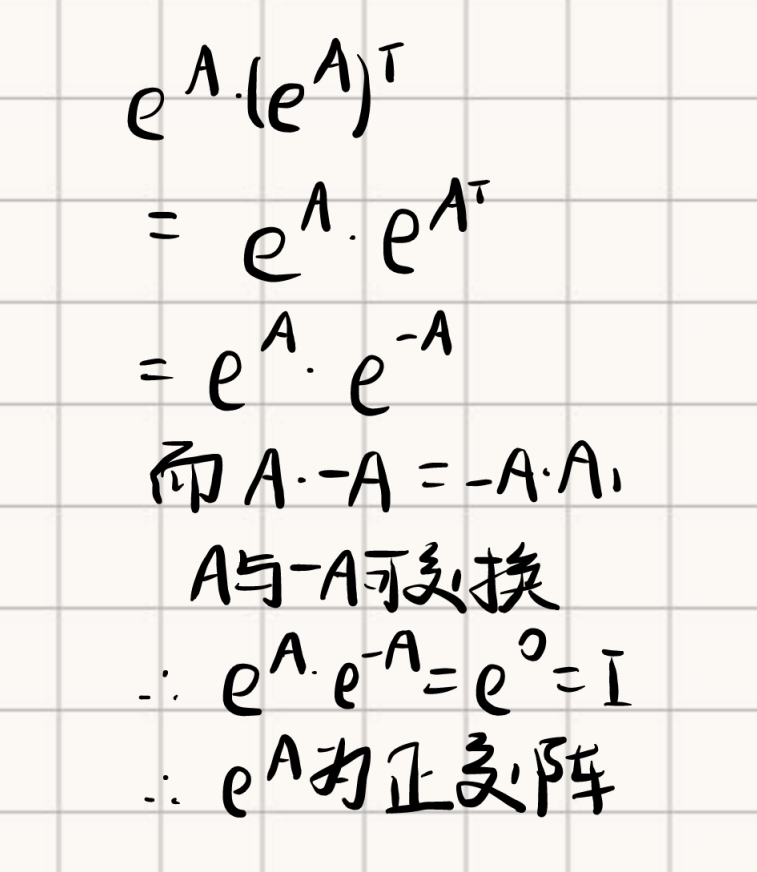 e^A·(e^A)^T
= e^A·e^{A^T}
= e^A·e^{-A}
而 A·-A = -A·A,
A与-A可交换
∴ e^A·e^{-A} = e^0 = I
∴ e^A为正交阵